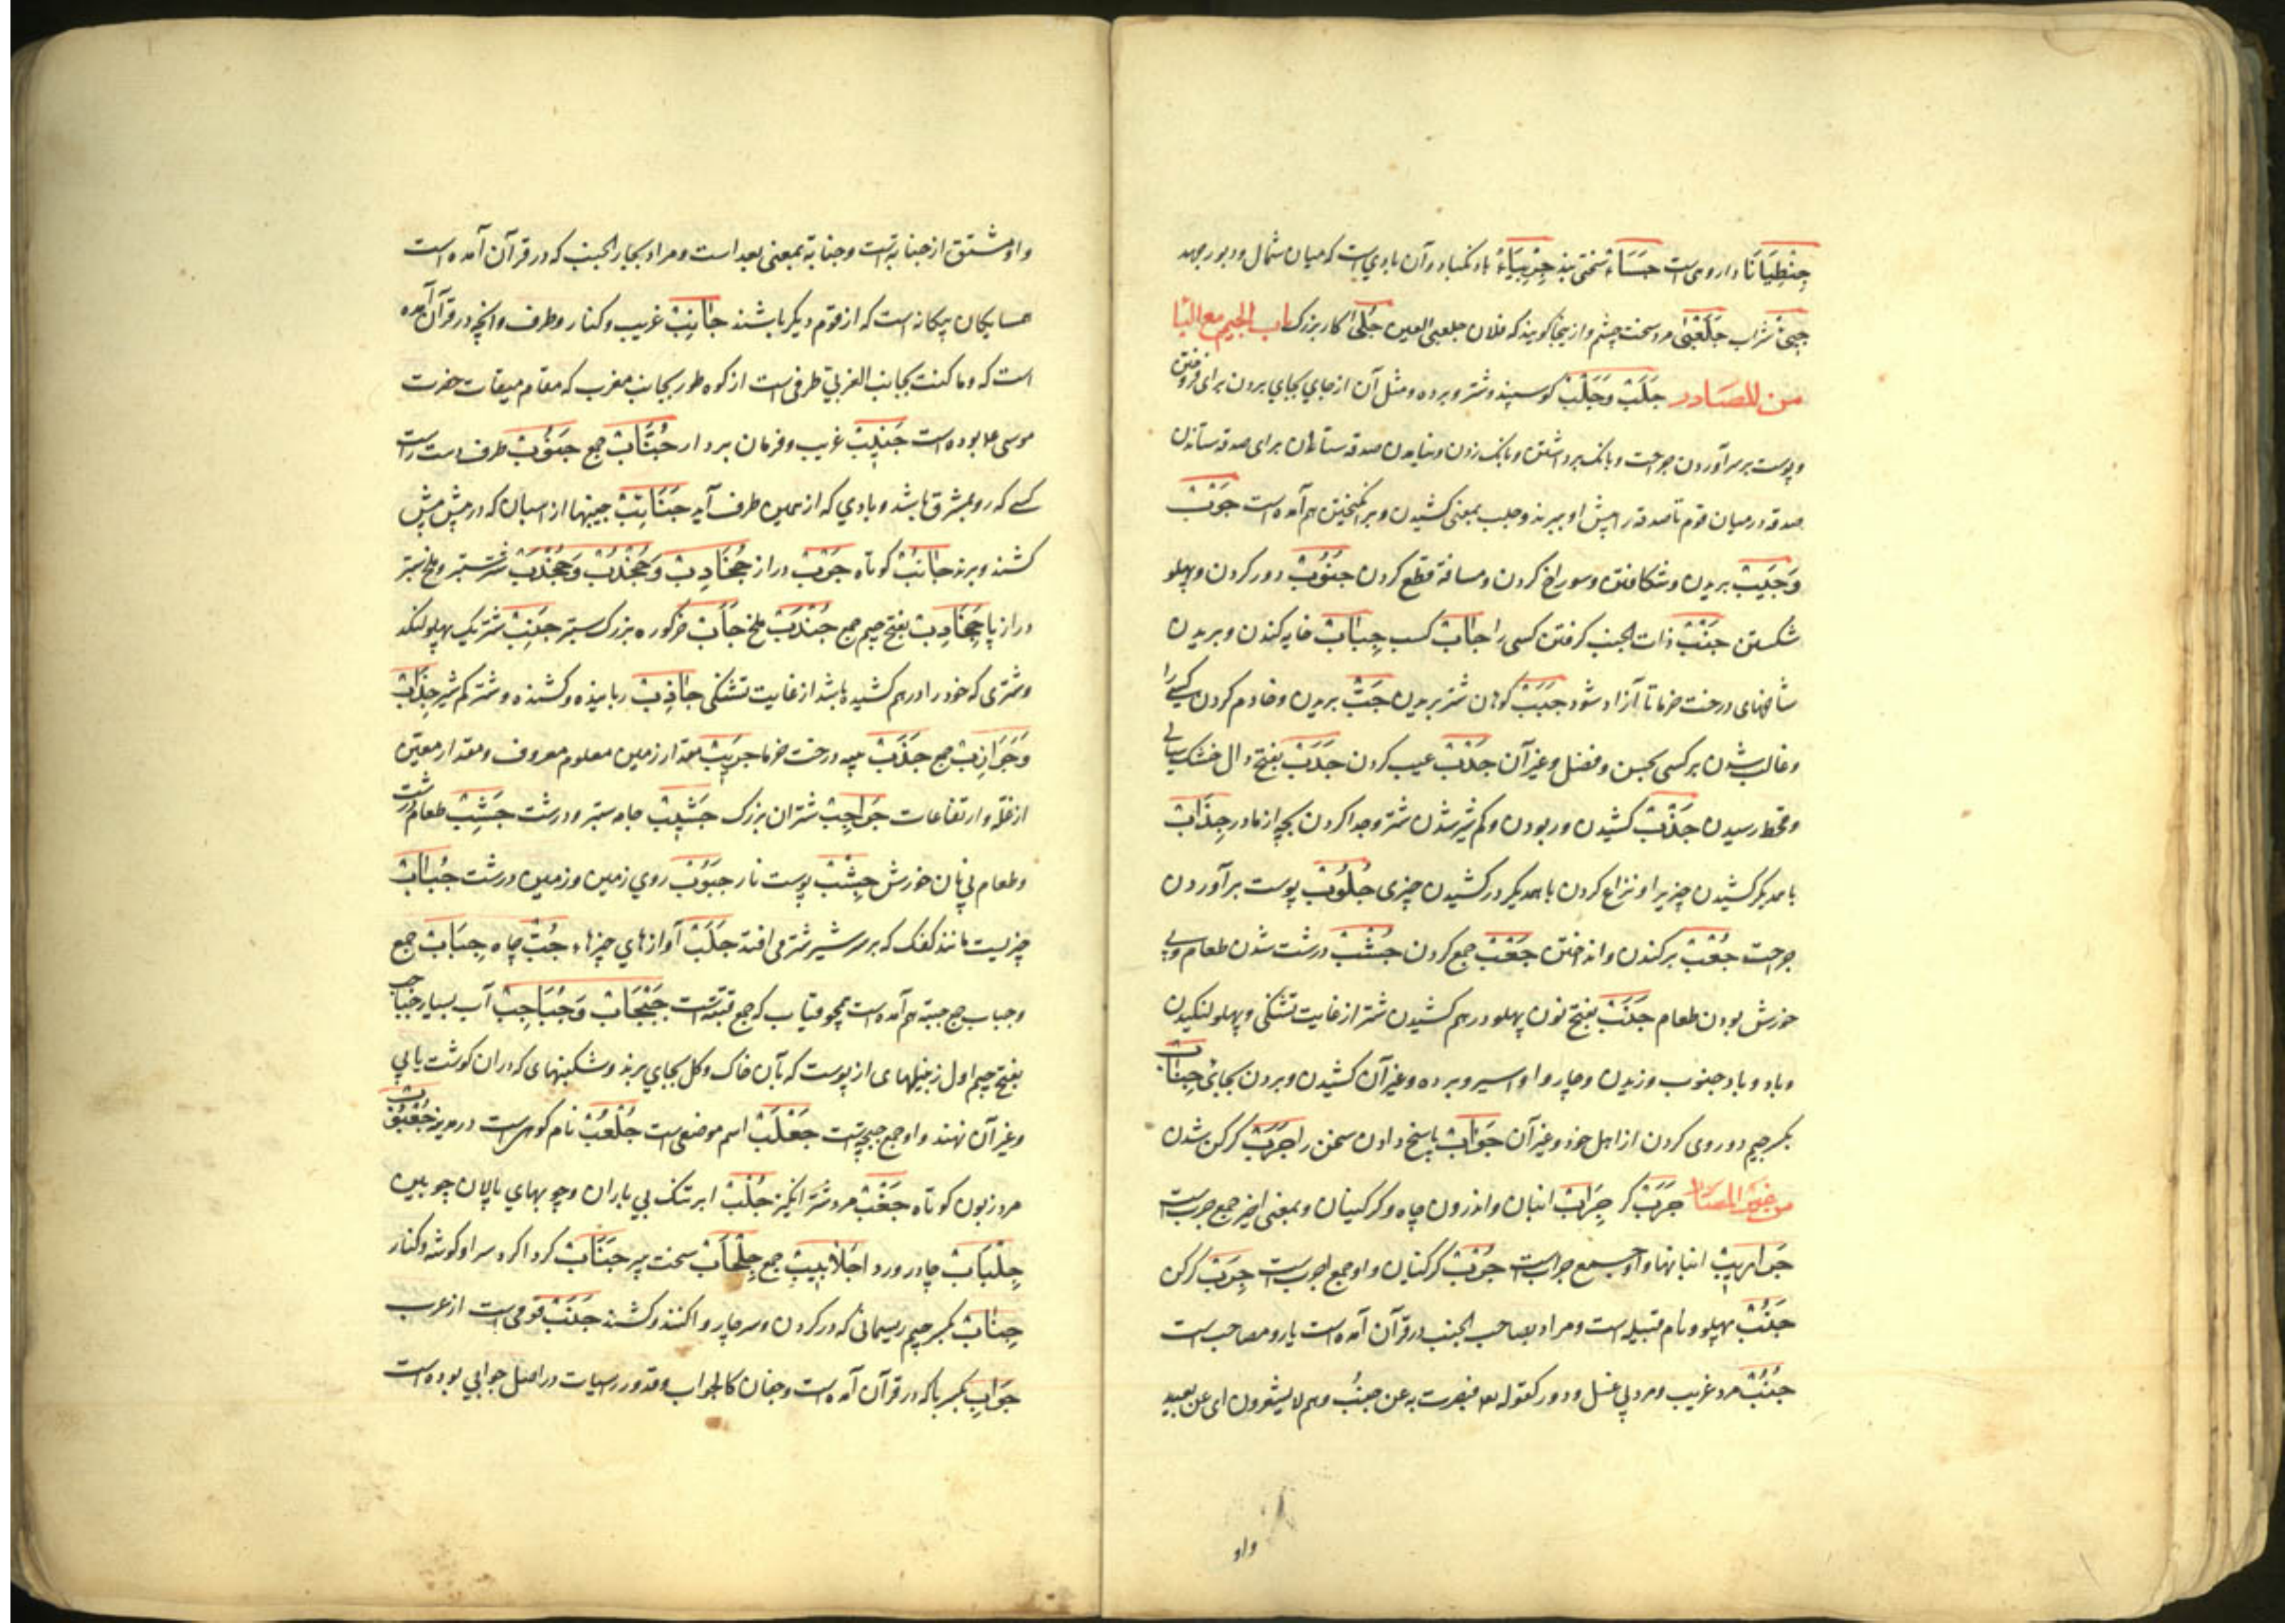 جِنْطِیَانَا داروی است جَسَاءْ سختی بند جِرْبِیَاءْ باد نکبا و آن بادی است که میان شمال و دبور جهد
شراب جَلَعْبیٰ مرد سخت چشم و از ینجا گویند که فلان جلعبی العین جُلّیٰ کار بزرک باب الجیم مع البا
من المصادر جَلَبْ وَجَلْبْ کوسپند و شتر و برده و مثل آن از جای بجای بردن برای فروختن
و پوست بر سر آوردن جراحت و بانک برداشتن و بانک زدن و صدقه ستانان برای صدقه ستاندن
صدقه در میان قوم تا صدقه را پیش او ببرند و جلب بمعنی کشیدن و برانکیختن هم آمده است جَوْبْ
وَجَیْبْ بریدن و شکافتن و سوراخ کردن و مسافة قطع کردن جُنُوْبْ دور کردن و پهلو
شکستن جَنْبْ ذات الجنب کرفتن کسی را جَاْبْ کسب جِبَابْ خایه کندن و بریدن
شاخهای درخت خرما تا آزاد شود جَبَبْ کوهان شتر بریدن جَبّْ بریدن و خادم کردن کسی را
و غالب شدن بر کسی بحسن و فضل و غیر آن جَدْبْ عیب کردن جَدَبْ بفتح دال خشک سالی
و قحط رسیدن جَذْبْ کشیدن و ربودن و کم شیر شدن شتر و جدا کردن بچه از مادر جِذَابْ
با همدیکر کشیدن چیزیرا و نزاع کردن با همدیکر در کشیدن چیزی جُلُوْبْ پوست بر آوردن
جراحت جُعْبْ برکندن و انداختن جَعْبْ جمع کردن جَشْبْ درشت شدن طعام و بی
خورش بودن طعام جَنَبْ بفتح نون پهلو درهم کشیدن شتر از غایت تشنکی و پهلو لنکیدن
و باد و باد جنوب وزیدن و چاروا و اسیر و برده و غیر آن کشیدن و بردن بجائی جِنَابْ
بکسر جیم دوروی کردن از اهل خود و غیر آن جَوَابْ پاسخ دادن سخن را جَرَبْ کرکن شدن
من غیر المصادر جَرَبْ کر جِرَابْ انبان و اندرون چاه و کرکینان و بمعنی اخیر جمع جرب است
جَوَارِیبْ انبانها و او جمع جراب است جُرْبْ کرکنیان و او جمع اجرب است جَرِبْ کرکن
جَنْبْ پهلو و نام قبیله است و مراد بصاحب الجنب در قرآن آمده است یار و مصاحب است
جُنُبْ مرد غریب و مرد بی غسل و دور کقوله تعا فبصرت به عن جنب وهم لا یشعرون ای عن بعید
واو
واو مشتق از جنابة است و جنابة بمعنی بعد است و مراد بجار الجنب که در قرآن آمده است
همسایکان بیکانه است که از قوم دیکر باشند جَانِبْ غریب و کنار و طرف و انچه در قرآن آمده
است که وما کنت بجانب الغربی طرفی است از کوه طور بجانب مغرب که مقام میقات حضرت
موسی علا بوده است جَنِیبْ غریب و فرمان بردار جُنَّابْ جمع جَنُوْبْ طرف دست راست
کسی که رو بمشرق باشد و بادی که از یمین طرف آید جَنَائِبْ جنیبها از اسبان که در پیش پیش
کشند و برند جَانَبْ کوتاه جَوْبْ دراز جُخَادِبْ وَجُخْدُبْ وَجُخْدَبْ شتر ستبر و ملخ سبز
دراز پا جَخَادِبْ بفتح جیم جمع جُنْدَبْ ملخ جَأْبْ خرکوره بزرک ستبر جَنِبْ شتر یک پهلو لنکد
و شتری که خود را درهم کشیده باشد از غایت تشنکی جَاذِبْ ربایذه و کشنده و شتر کم شیر جِذَابْ
وَجَوَاذِبْ جمع جَذَبْ پیه درخت خرما جَرِیْبْ مقدار زمین معلوم معروف و مقدار معیّن
از غلّه و ارتفاعات جَوَاجِبْ شتران بزرک جَشِیْبْ جامه ستبر و درشت جَشِبْ طعام درشت
و طعام بی نان خورش جِشْبْ پوست نار جَبُوْبْ روی زمین و زمین درشت جُبَابْ
چزیست مانند کفک که بر سر شیر شتر می افتد جَلَبْ آوازهای چیزها جُبّْ چاه جِبَابْ جمع
و جباب جمع جبّة هم آمده است همچو قباب که جمع قبّة است جَبْجَابْ وَجُبَاجِبْ آب بسیار جَبَاجِبْ
بفتح جیم اول زنبیلهای از پوست که بآن خاک و کل بجای برند و شکنبهای که در آن کوشت یا پی
و غیر آن نهند و او جمع جبجبة است جَعْلَبْ اسم موضعی است جُلْعُبْ نام کوهی است در مدینه جُعْبُبْ
مرد زبون کوتاه جَعْبْ مرد شر انکیز جُلْبْ ابر تنک بی باران و چوبهای پالان چوبین
جِلْبَابْ چادر و ردا جَلَابِیبْ جمع جِلْحَابْ سخت پیر جَنَابْ کردا کرد سرا و کوشه و کنار
جِنَابْ بکسر جیم ریسمانی که در کردن و سر چاروا کنند و کشند جَنَبْ قومی است از عرب
جَوَابِ بکسر با که در قرآن آمده است وجفان کالجواب وقدور راسیات در اصل جوابی بوده است